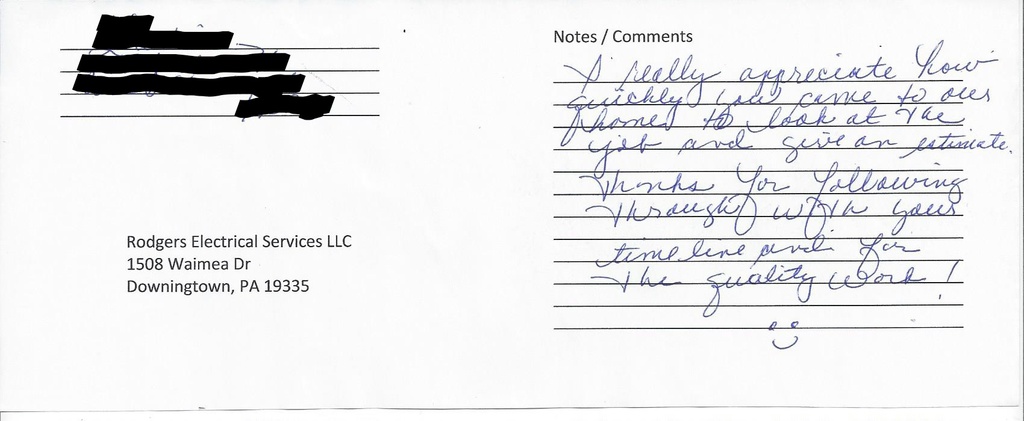 Notes / Comments
I really appreciate how
quickly you came to our
home to look at the
job and give an estimate.
Thanks for following
through with your
timeline and for
the quality work!
Rodgers Electrical Services LLC
1508 Waimea Dr
Downingtown, PA 19335